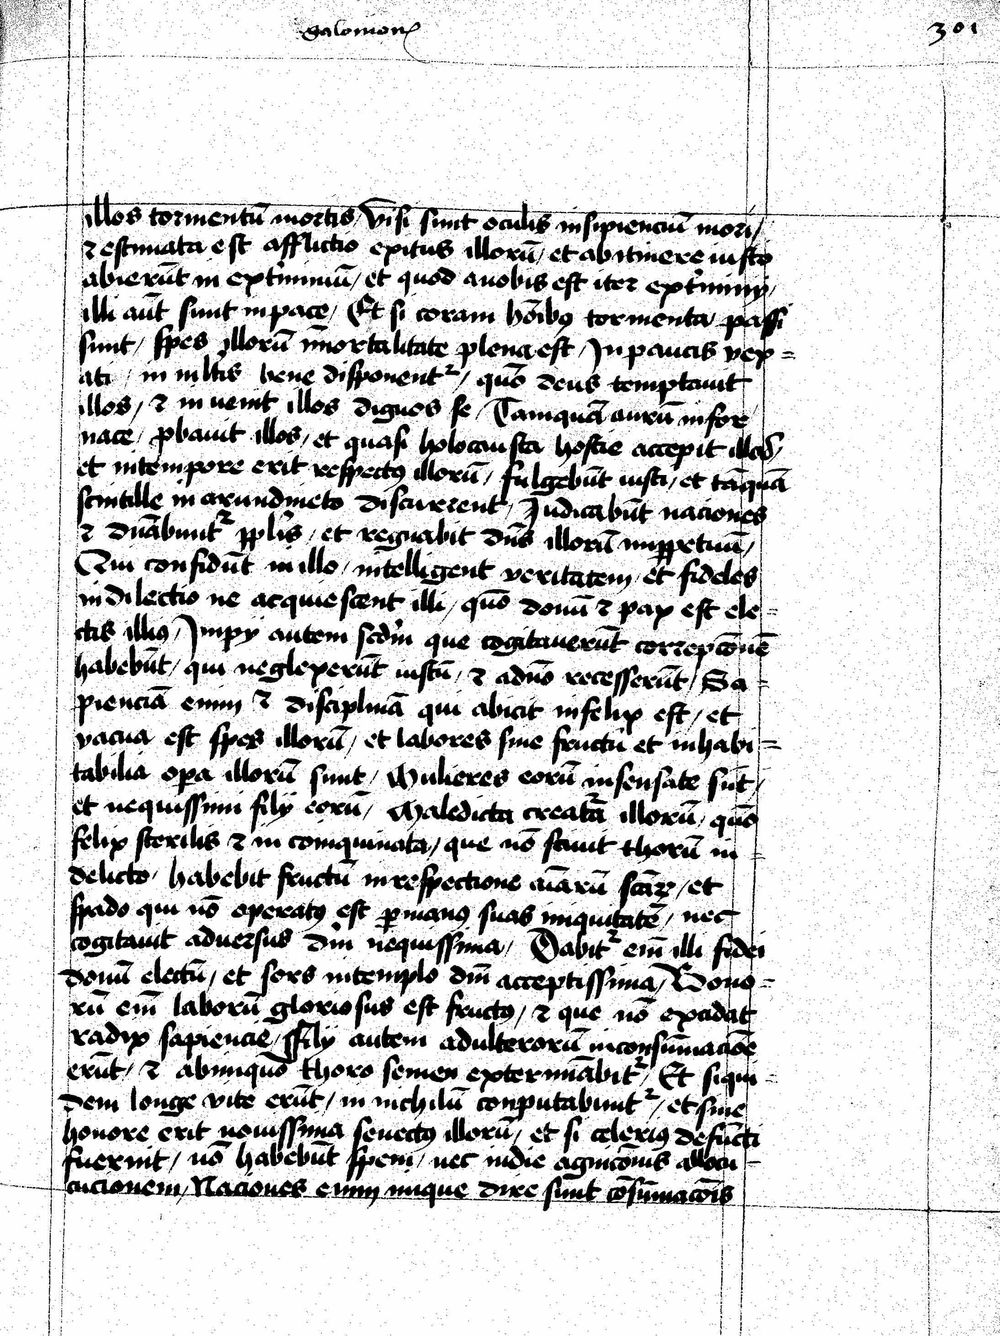 Salomon(is)
301
illos tormentū mortis / Visi sunt oculis insipienciū mori /
⁊ estimata est afflictio exitus illorū / et abitinere iusto
abierūt in exteminiū / et quod anobis est iterext'minij /
illi aūt sunt inpace / Et si coram hōibꝰ tormenta passi
sunt / spes illorū īmortalitate plena est / In paucis vex=
ati / in mltis bene disponentᷣ / quō deus temptauit
illos / ⁊ inuenit illos dignos se / Tamquā aurū infor
nace / ꝓbauit illos / et quasi holocausta hostie accepit illos /
et intempore erit respectꝰ illorū / fulgebūt iusti / et tāquā
scintille in arundineto discurrent / Judicabūt naciones
⁊ dn̄abuntᷣ pplis / et regnabit dn̄s illorū inꝑpetuū /
Qui confidūt in illo / intelligent veritatem / et fideles
in dilectio ne acquiescent illi / quō donū ⁊ pax est ele=
ctis illiꝰ / Impij autem scdm̄ que cogitauerūt correpcōnē
habebūt / qui neglexerūt iustū / ⁊ adn̄o recesserūt / Sa=
pienciā enim ⁊ disciplinā qui abicit infelix est / et
vacua est spes illorū / et labores sine fructu et inhabi=
tabilia opa illorū sunt / Mulieres eorū insensate sūt /
et nequissimi filij eorū / Maledicta creatᷓa illorū / quō
felix sterilis ⁊ in coinquinata / que nō sciuit thorū in=
delicto / habebit fructū inrespectione aīarū scāꝝ / et
spado qui nō operatꝰ est ꝑ manꝰ suas iniquitatē / nec
cogitauit aduersus dm̄ nequissima / Dabitᷣ em̄ illi fidei
donū electū / et sors intemplo dei acceptissima / Bono=
rū em̄ laborū gloriosus est fructꝰ / ⁊ que nō excidat
radix sapiencie / ffilij autem adulterorū inconsūmacōe
erūt / ⁊ abiniquo thoro semen exterminabitᷣ / Et siqui=
dem longe vite erūt / in nichilū conputabuntᷣ / et sine
honore erit nouissima senectꝰ illorū / et si celeriꝰ defūcti
fuerint / nō habebūt spem / nec indie agnicōnis allocu=
cucionem / Naciones enim inique dire sunt cōsūmacōis